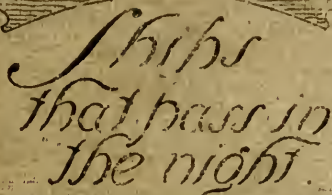 Ships
that pass in
the night.